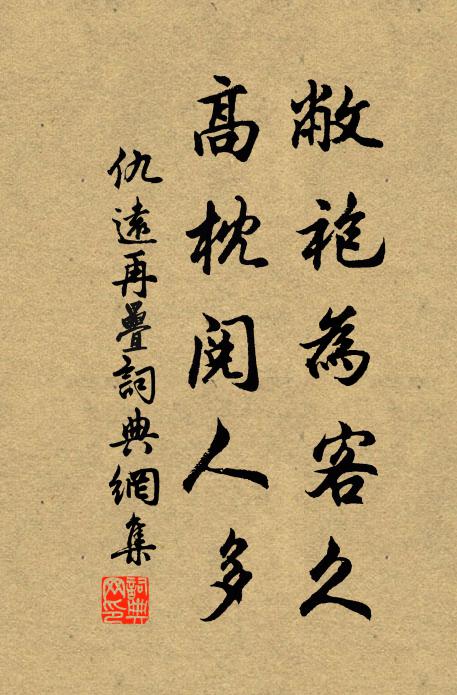 敝袍為客久
高枕閱人多
仇遠再疊詞典網集
詞典
网印